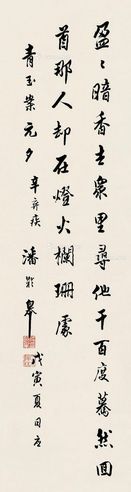 盈盈暗香去众里寻他千百度蓦然回
首那人却在灯火阑珊处
青玉案元夕 辛弃疾
潘龄皋
戊寅夏日书